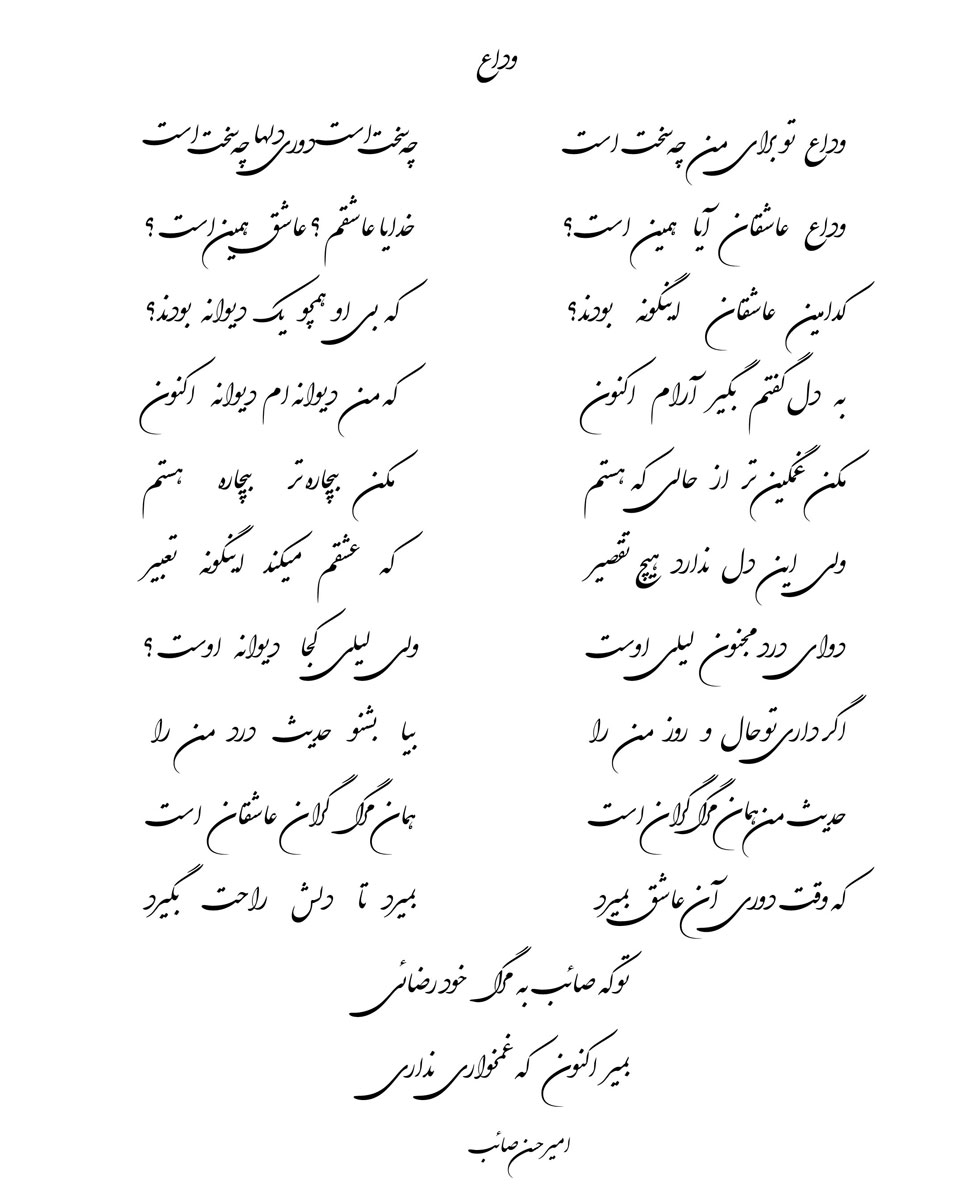 وداع
وداع تو برای من چه سخت است چه سخت است دوری دلها چه سخت است
وداع عاشقان آیا همین است؟ خدایا عاشقم ؟ عاشق همین است ؟
کدامین عاشقان اینگونه بودند؟ که بی او همچو یک دیوانه بودند؟
به دل گفتم بگیر آرام اکنون که من دیوانه ام دیوانه اکنون
مکن غمگین تر از حالی که هستم مکن بیچاره تر بیچاره هستم
ولی این دل ندارد هیچ تقصیر که عشقم میکند اینگونه تعبیر
دوای درد مجنون لیلی اوست ولی لیلی کجا دیوانه اوست ؟
اگر داری تو حال و روز من را بیا بشنو حدیث درد من را
حدیث من همان مرگ گران است همان مرگ گران عاشقان است
که وقت دوری آن عاشق بمیرد بمیرد تا دلش راحت بگیرد
تو که صائب به مرگ خود رضائی
بمیر اکنون که غمخواری نداری
امیرحسن صائب